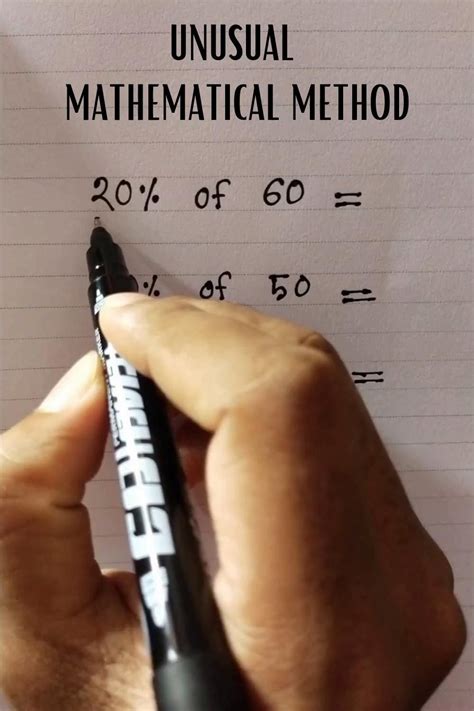 UNUSUAL
MATHEMATICAL METHOD
20% of 60 =
% of 50 =
=